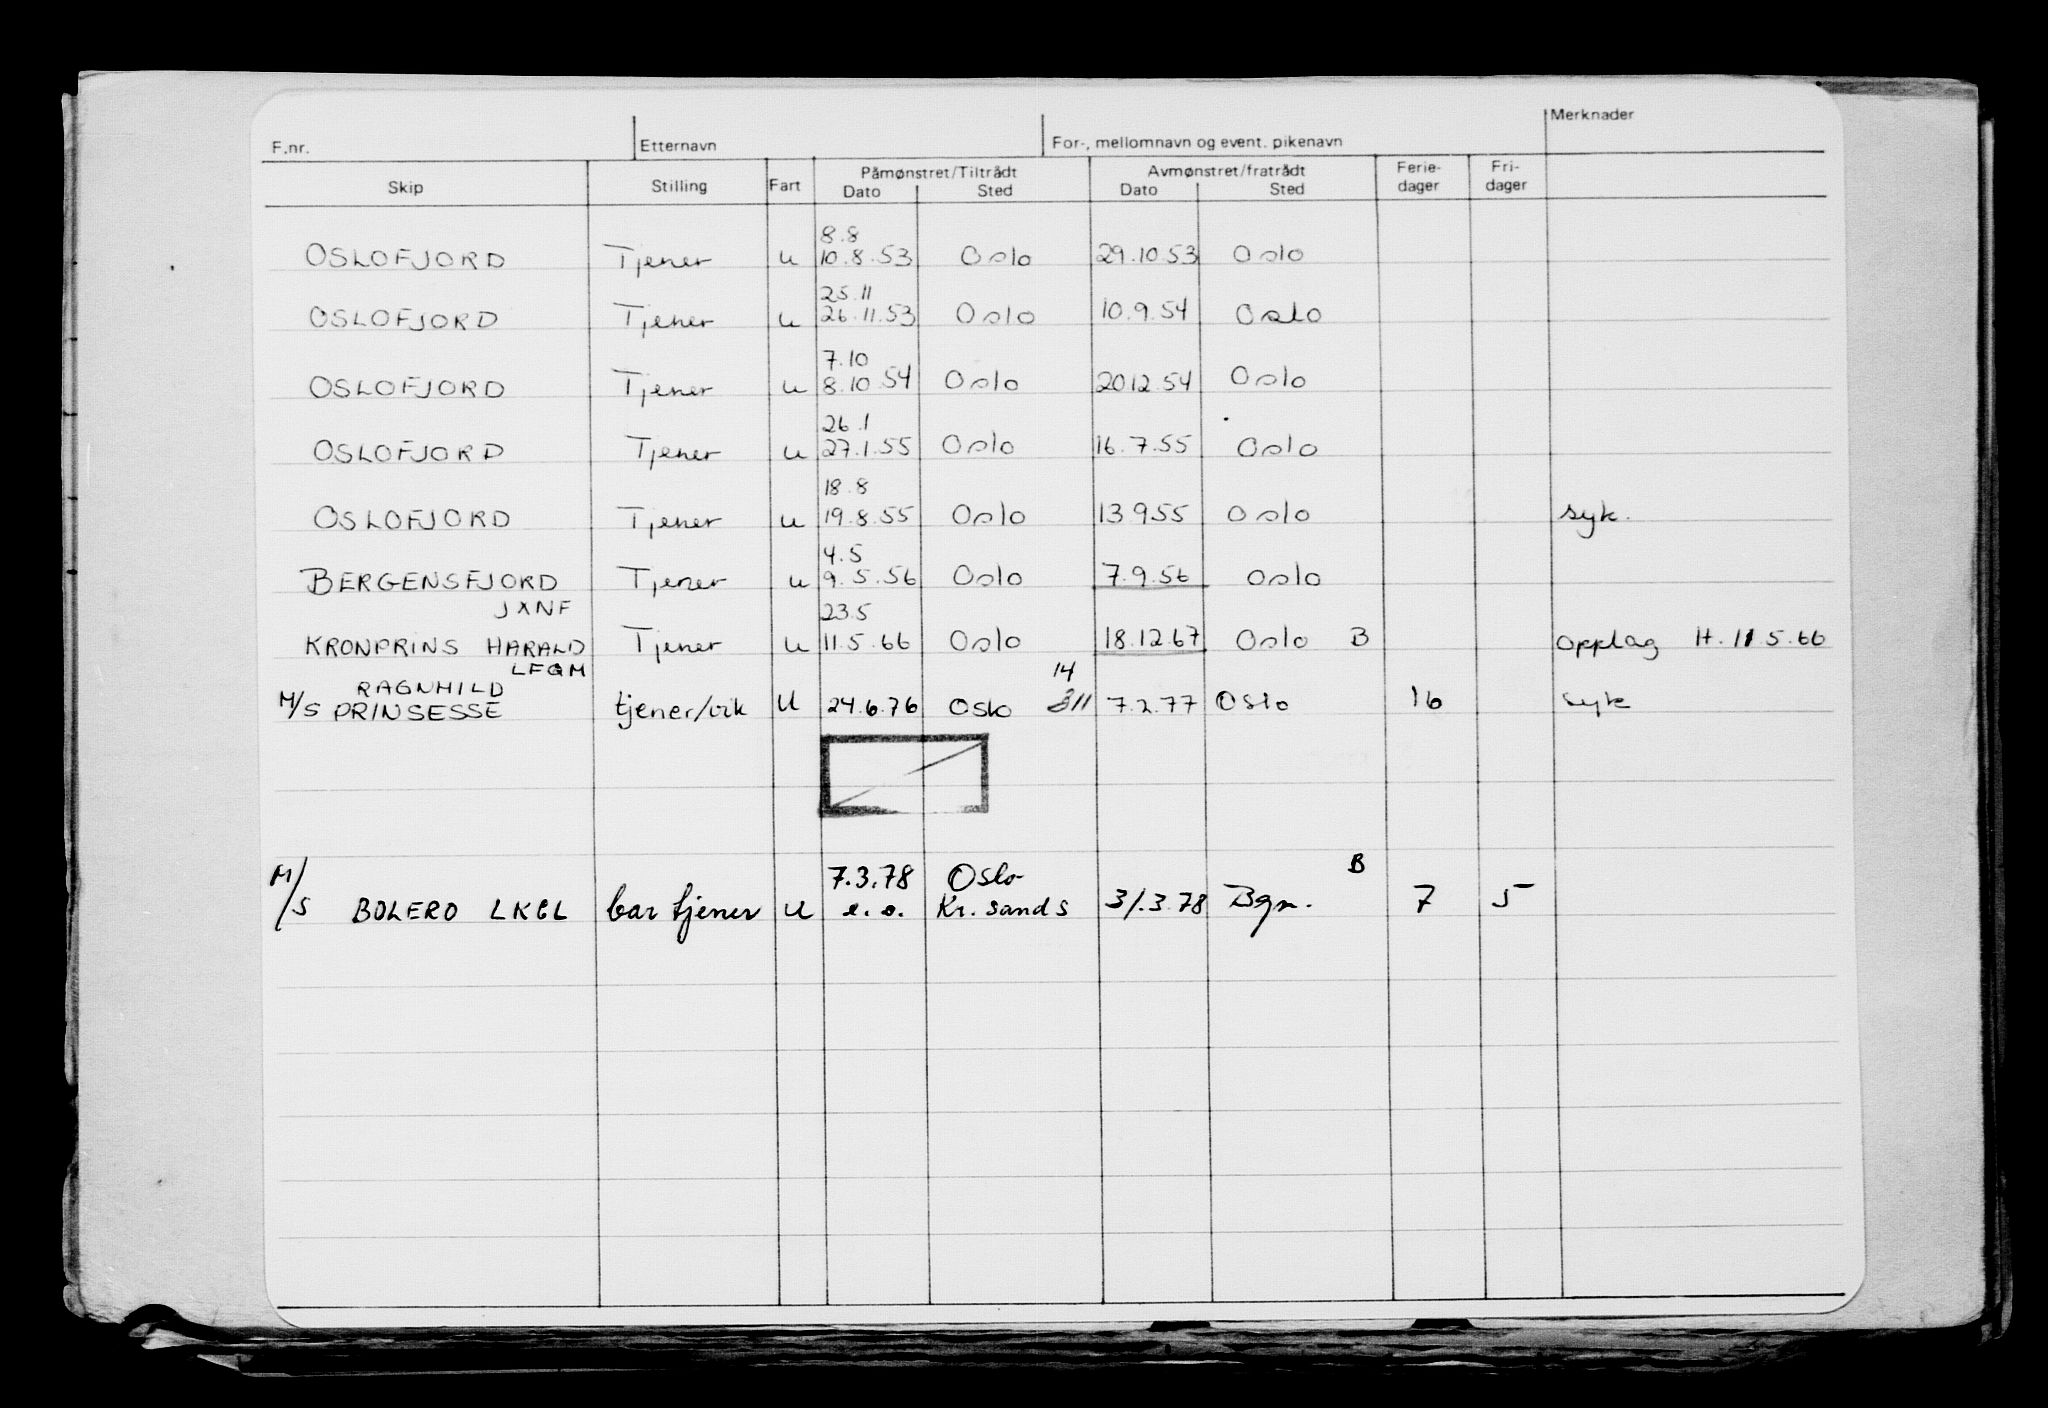 F.nr. Etternavn For-, mellomnavn og event. pikenavn Merknader
Skip Stilling Fart Påmønstret/Tiltrådt Avmønstret/fratrådt Ferie- Fri-
Dato Sted Dato Sted dager dager
8.8
OSLOFJORD Tjener u 10.8.53 Oslo 29.10.53 Oslo
25.11
OSLOFJORD Tjener u 26.11.53 Oslo 10.9.54 Oslo
7.10
OSLOFJORD Tjener u 8.10.54 Oslo 20.12.54 Oslo
26.1
OSLOFJORD Tjener u 27.1.55 Oslo 16.7.55 Oslo
18.8
OSLOFJORD Tjener u 19.8.55 Oslo 13.9.55 Oslo syk.
4.5
BERGENSFJORD Tjener u 9.5.56 Oslo 7.9.56 Oslo
JXNF 23.5
KRONPRINS HARALD Tjener u 11.5.66 Oslo 18.12.67 Oslo B opplag H. 11.5.66
LFQM 14
RAGNHILD
M/S PRINSESSE tjener/vik U 24.6.76 Oslo 7.2.77 Oslo 16 syk
7.3.78 Oslo B
M/S BOLERO LKBL bar tjener u e.o. Kr.sands 31.3.78 Bgn. 7 5